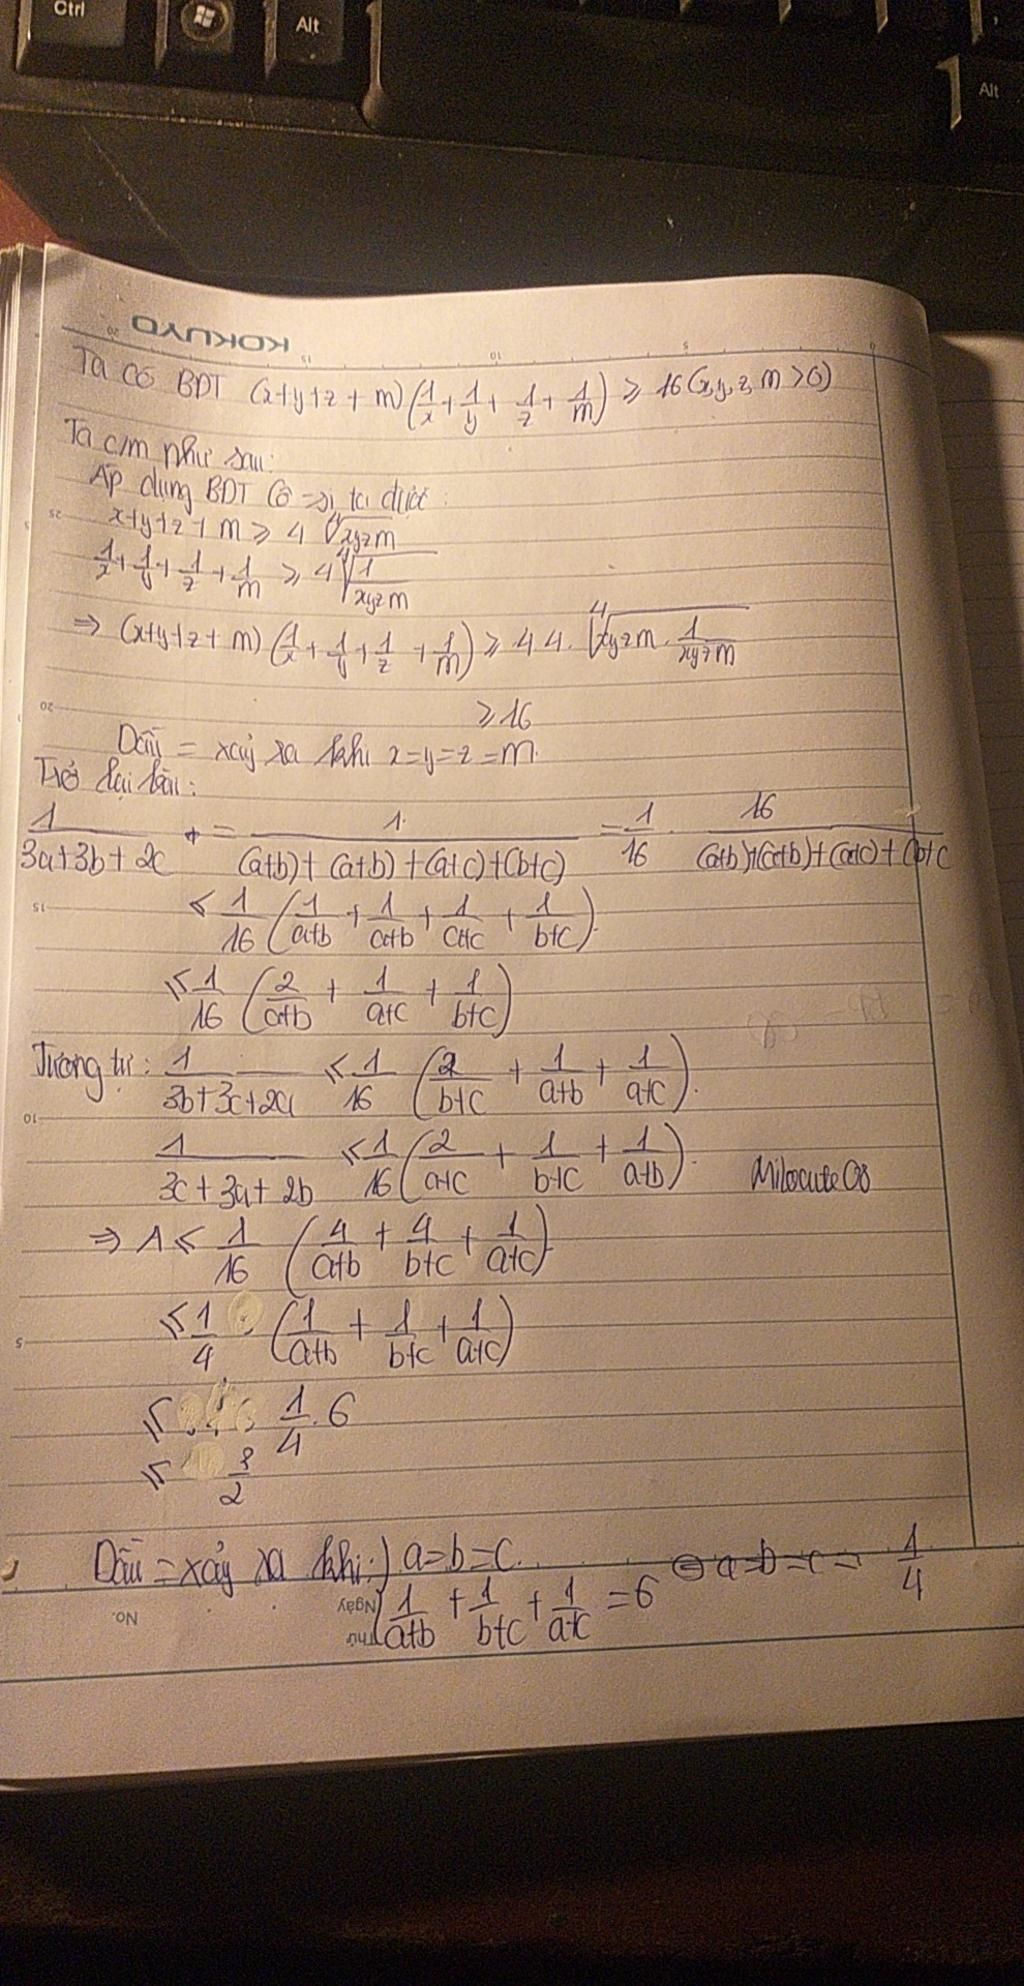 Ctrl
Alt
Alt
KOKUYO
Ta có BĐT (x+y+z+m)(1/x + 1/y + 1/z + 1/m) ≥ 16 (x,y,z,m >0)
Ta c/m như sau:
Áp dụng BĐT Cô-si ta được:
x+y+z+m ≥ 4 ∜(xyzm)
1/x + 1/y + 1/z + 1/m ≥ 4 ∜(1/xyzm)
⇒ (x+y+z+m)(1/x + 1/y + 1/z + 1/m) ≥ 4.4. ∜(xyzm . 1/xyzm)
≥ 16
Dấu = xảy ra khi x=y=z=m.
Trở lại bài:
1/(3a+3b+2c) = 1/((a+b)+(a+b)+(a+c)+(b+c)) = 1/16 . 16/((a+b)+(a+b)+(a+c)+(b+c)
≤ 1/16 (1/(a+b) + 1/(a+b) + 1/(a+c) + 1/(b+c)).
≤ 1/16 (2/(a+b) + 1/(a+c) + 1/(b+c))
Tương tự: 1/(3b+3c+2a) ≤ 1/16 (2/(b+c) + 1/(a+b) + 1/(a+c)).
1/(3c+3a+2b) ≤ 1/16 (2/(a+c) + 1/(b+c) + 1/(a+b)). Milocute08
⇒ A ≤ 1/16 (4/(a+b) + 4/(b+c) + 1/(a+c))
≤ 1/4 . (1/(a+b) + 1/(b+c) + 1/(a+c))
≤ 1/4 . 6
Dấu = xảy ra khi: { a=b=c. ⇔ a=b=c= 1/4
1/(a+b) + 1/(b+c) + 1/(a+c) = 6
No.
Ngày
Thứ